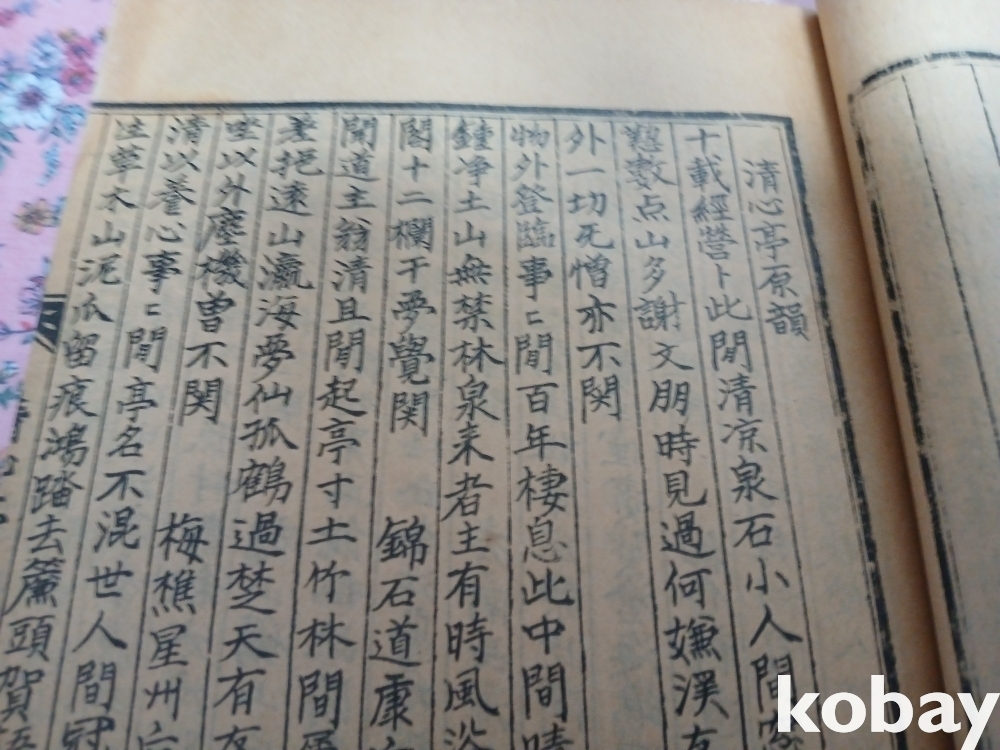 清心亭原韻
十載經營卜此閒清凉泉石小人間
懇數点山多謝文朋時見過何嫌漢
外一切死憎亦不関
物外登臨事〻閒百年棲息此中間
鐘净土山無禁林泉来者主有時風浴
閣十二欄干夢覺関 錦石道康
聞道主翁清且閒起亭寸土竹林間
差挹遠山瀛海夢仙孤鶴過楚天有
坐以外塵機曽不関 梅樵星州
清以養心事〻閒亭名不混世人間冠
草木山泥爪留痕鴻踏去簾頭賀語
kobay